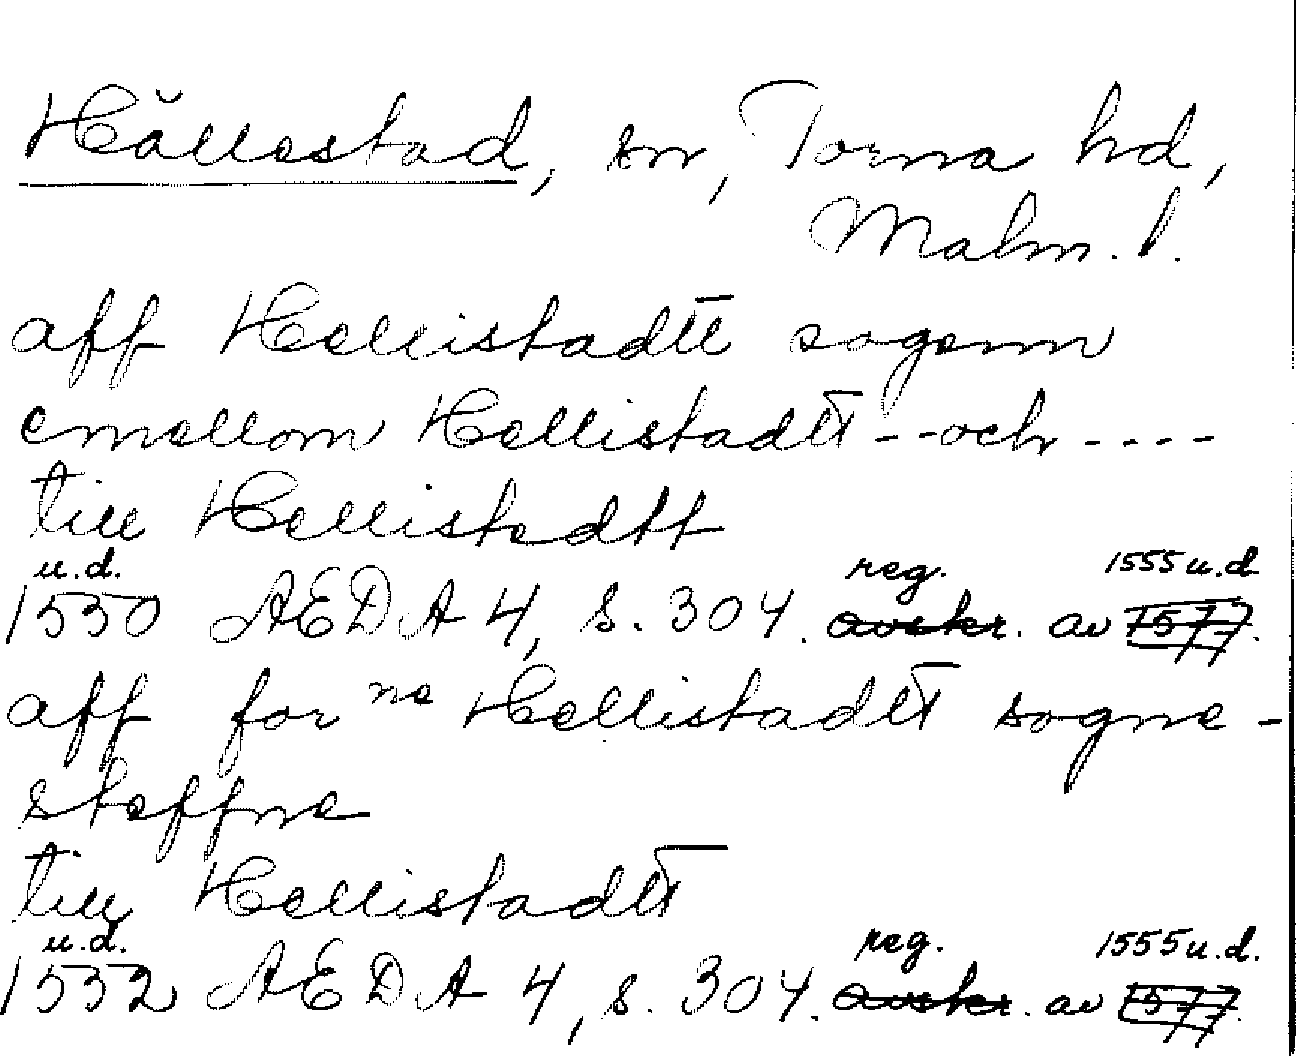 Hällestad, sn, Torna hd,
Malm. l.
aff Hellistadtt sogenn
emellom Hellistadtt - - och - - - -
till Hellistadtt
u.d. reg. 1555 u.d.
1530 AEDA 4, s. 304. avskr. av 1577.
aff for ne Hellistadtt sogne-
steffne
till Hellistadtt
u.d. reg. 1555 u.d.
1532 AEDA 4, s. 304. avskr. av 1577.